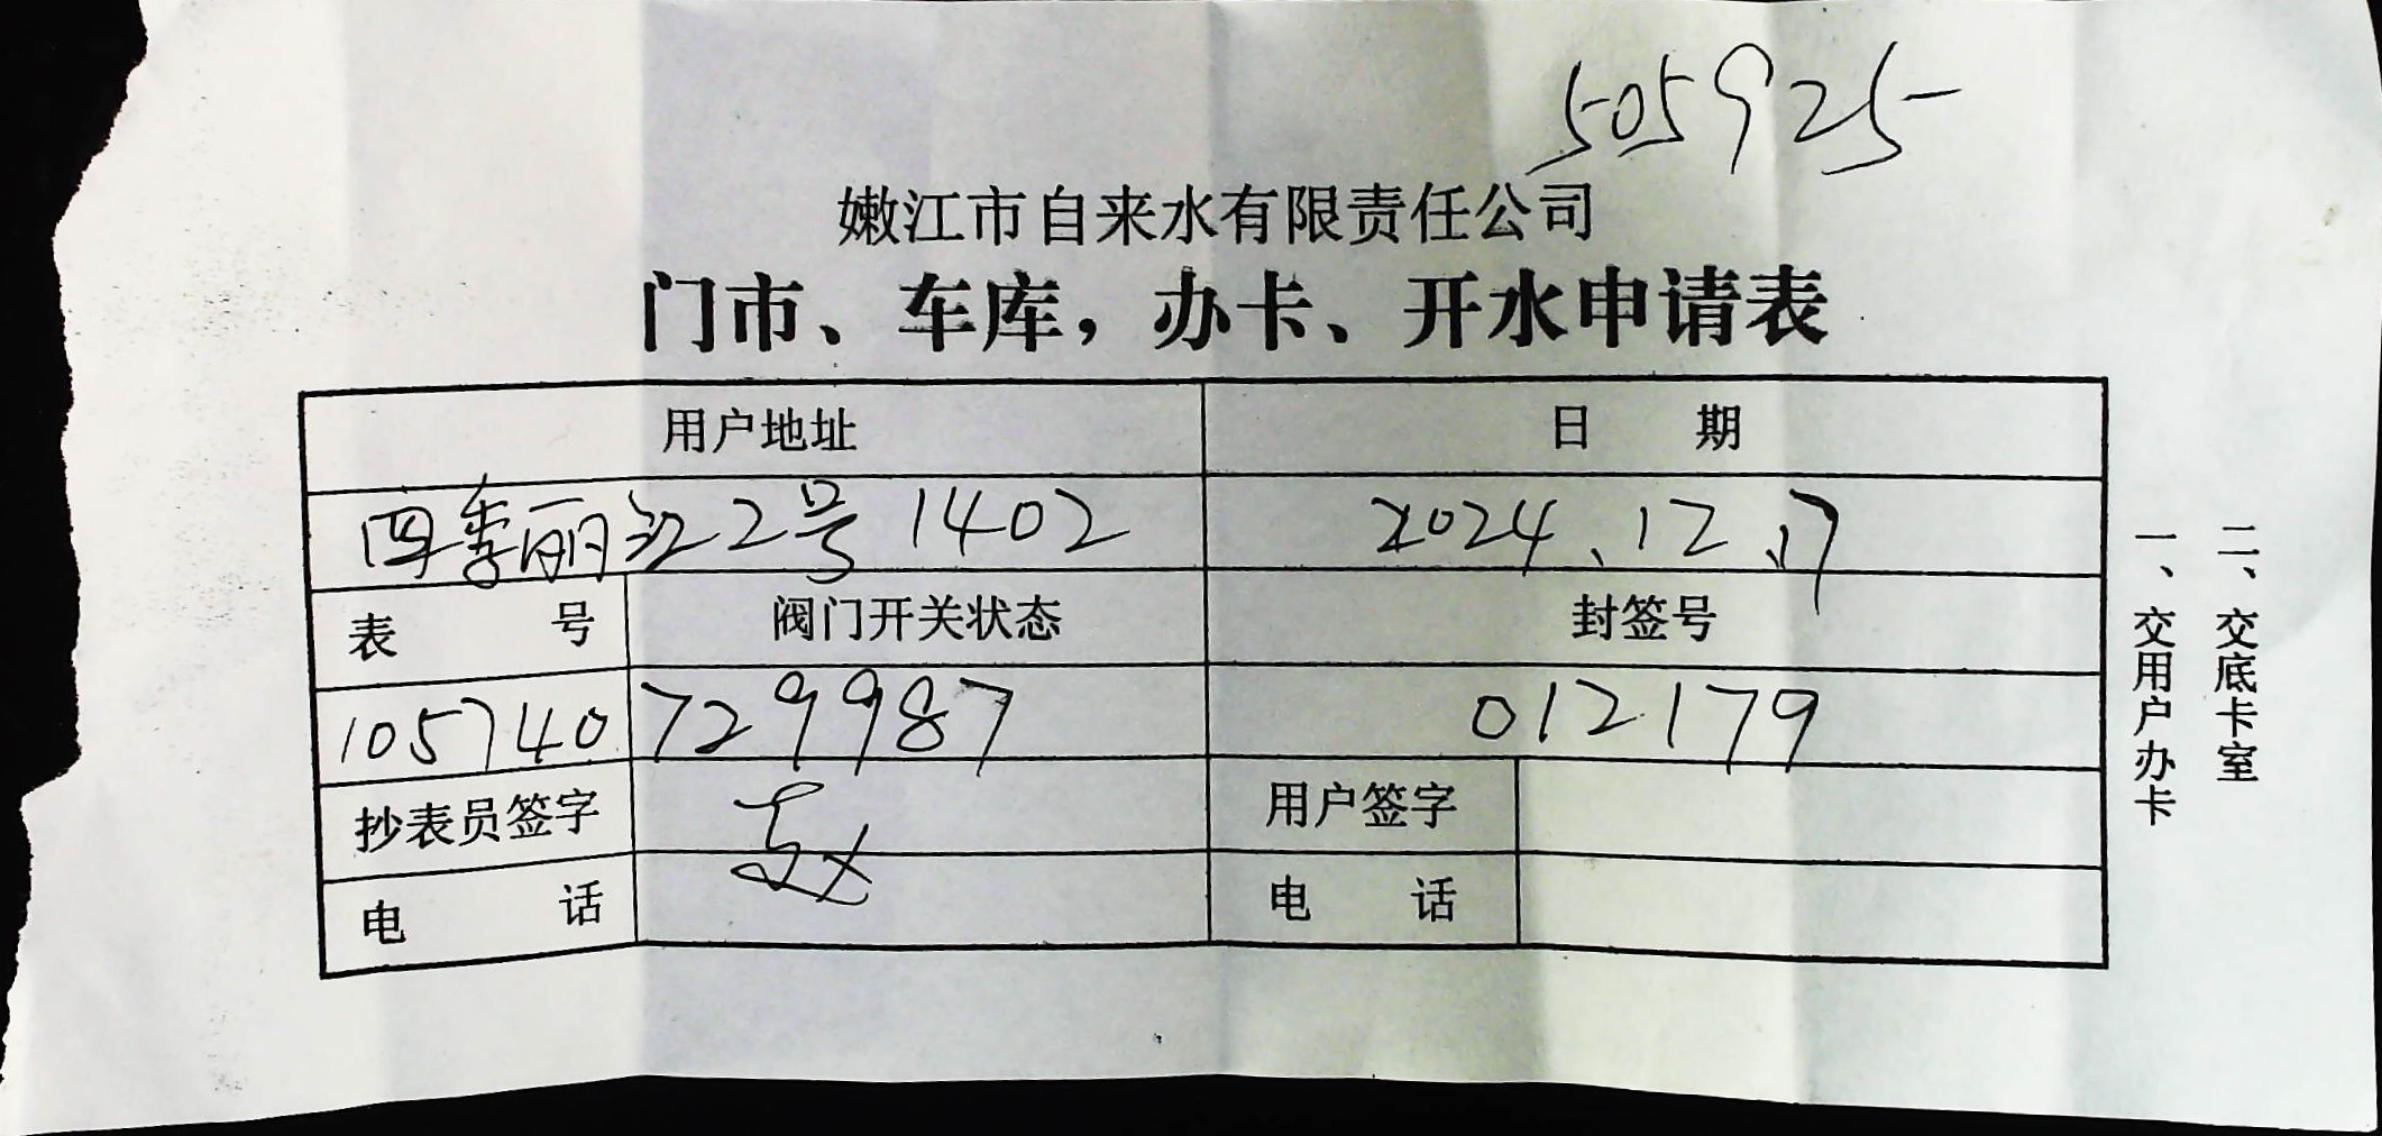 505925
嫩江市自来水有限责任公司
门市、车库，办卡、开水申请表
用户地址 日 期
四季丽江2号1402 2024.12.17
表 号 阀门开关状态 封签号
105740 729987 012179
抄表员签字 用户签字
电 话 电 话
二、交底卡室
一、交用户办卡